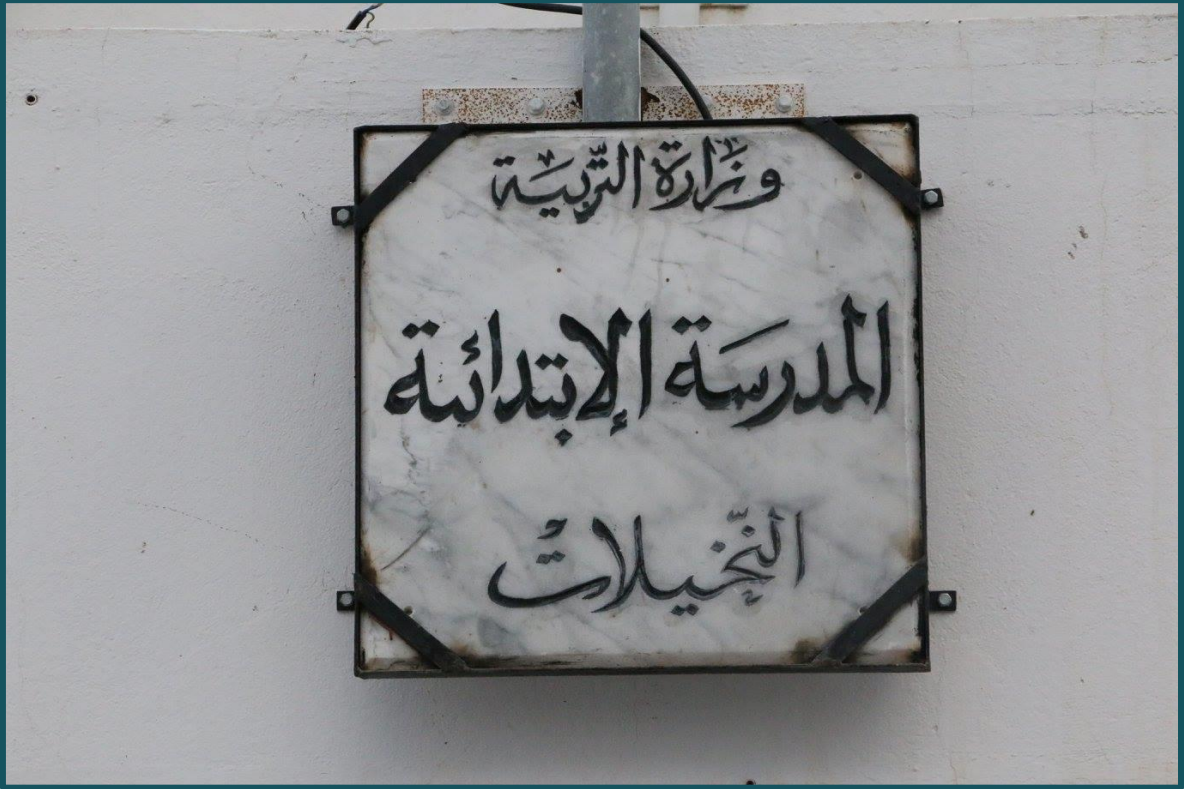 وزارة التّربية
المدرسة الإبتدائية
النّخيلات